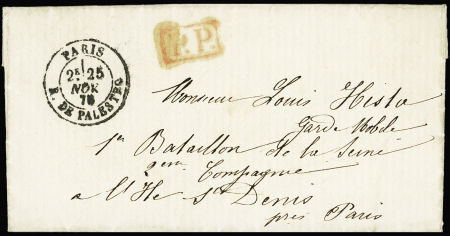 PARIS
2E 25
NOV
70
R. DE PALESTRO
P.P.
Monsieur Louis
Garde Mobile
1er Bataillon de la Seine
Compagnie
a l'Ile St Denis
près Paris